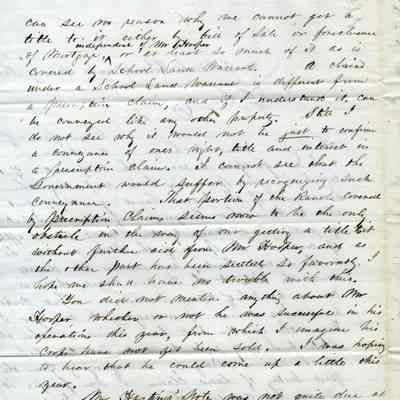 can see no reason why we cannot get a
title to it either by bill of Sale or foreclosure
independent of Mr Hooper
of Mortgage, or at least so much of it as is
covered by School Land Warrant. A claim
under a School Land Warrant is different from
a preemption claim, and if I understand it, can
be conveyed like any other property. Still I
do not see why it would not be just to confirm
a conveyance of ones right, title and interest in
a preemption claim. I cannot see that the
Government would suffer by recognizing such
conveyance. That portion of the Ranch covered
by Preemption Claims seems now to be the only
obstacle in the way of our getting a title
without further aid from Mr Hooper, and as
the other part has been settled so favorably I
hope we shall have no trouble with this.
You did not mention anything about Mr
Hooper whether or not he was successful in his
operations this year, from which I imagine his
crops have not yet been sold. I was hoping
to hear that he could come up a little this
year.
Mr Note was not quite due at